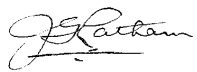 J G Latham